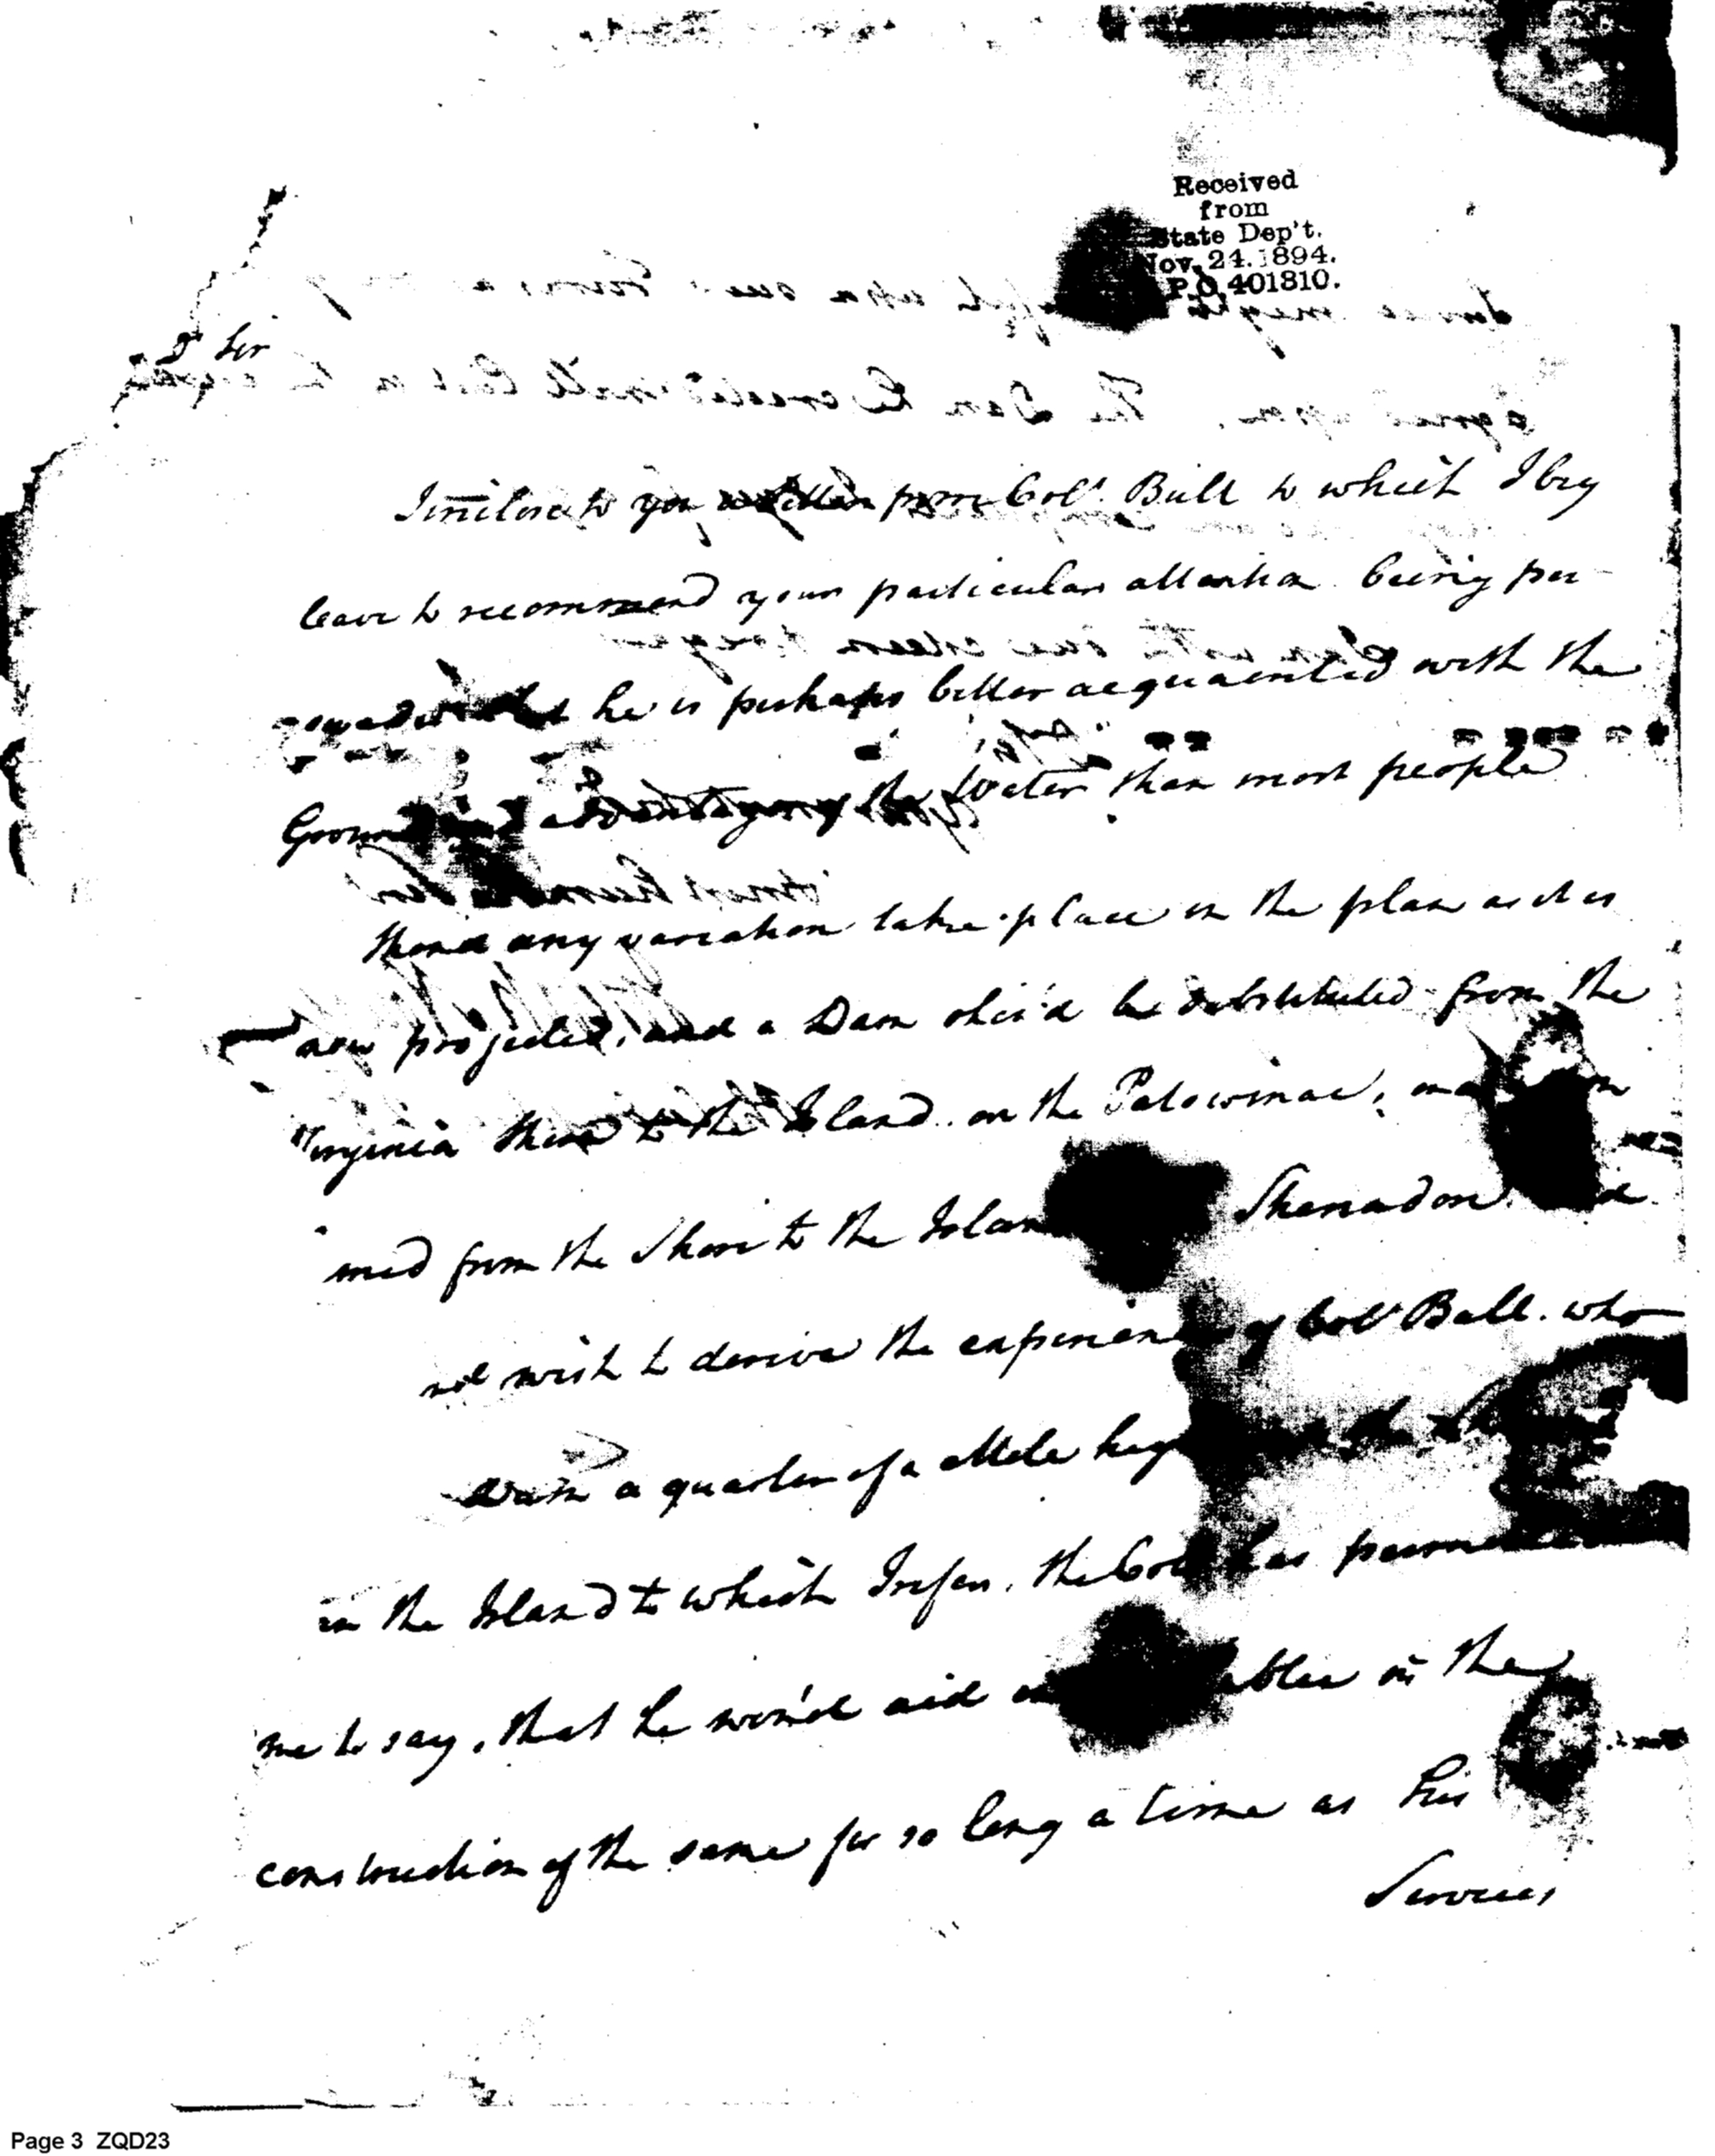 Received
from
State Dep't.
Nov. 24. 1894.
P.O. 401810.
Dr Sir
I inclose to you a letter from Colo. Bull to which I beg
leave to recommend your particular attention being per-
-swaded that he is perhaps better acquainted with the
Ground and advantages of the Water than most people
Shou'd any variation take place in the plan as it is
now projected, and a Dam shou'd be substituted from the
Virginia Shore to the Island on the Potowmac,
from the Shore to the Island Shenadore.
not wish to derive the experience of Colo Bull. who
a quarter of a Mile
in the Island to which I refer, the Colo has
me to say, that he wou'd aid in the
construction of the same for so long a time as his
Services
Page 3 ZQD23